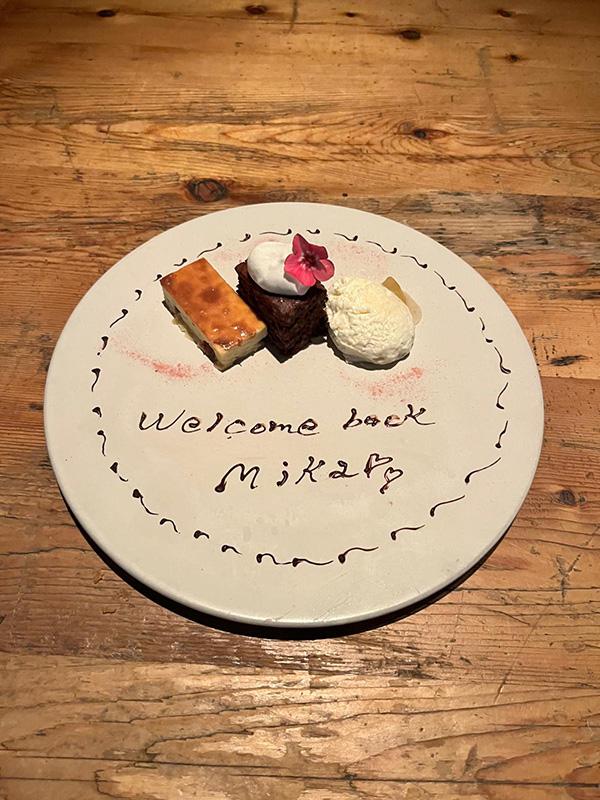 Welcome back
Mika♡♡